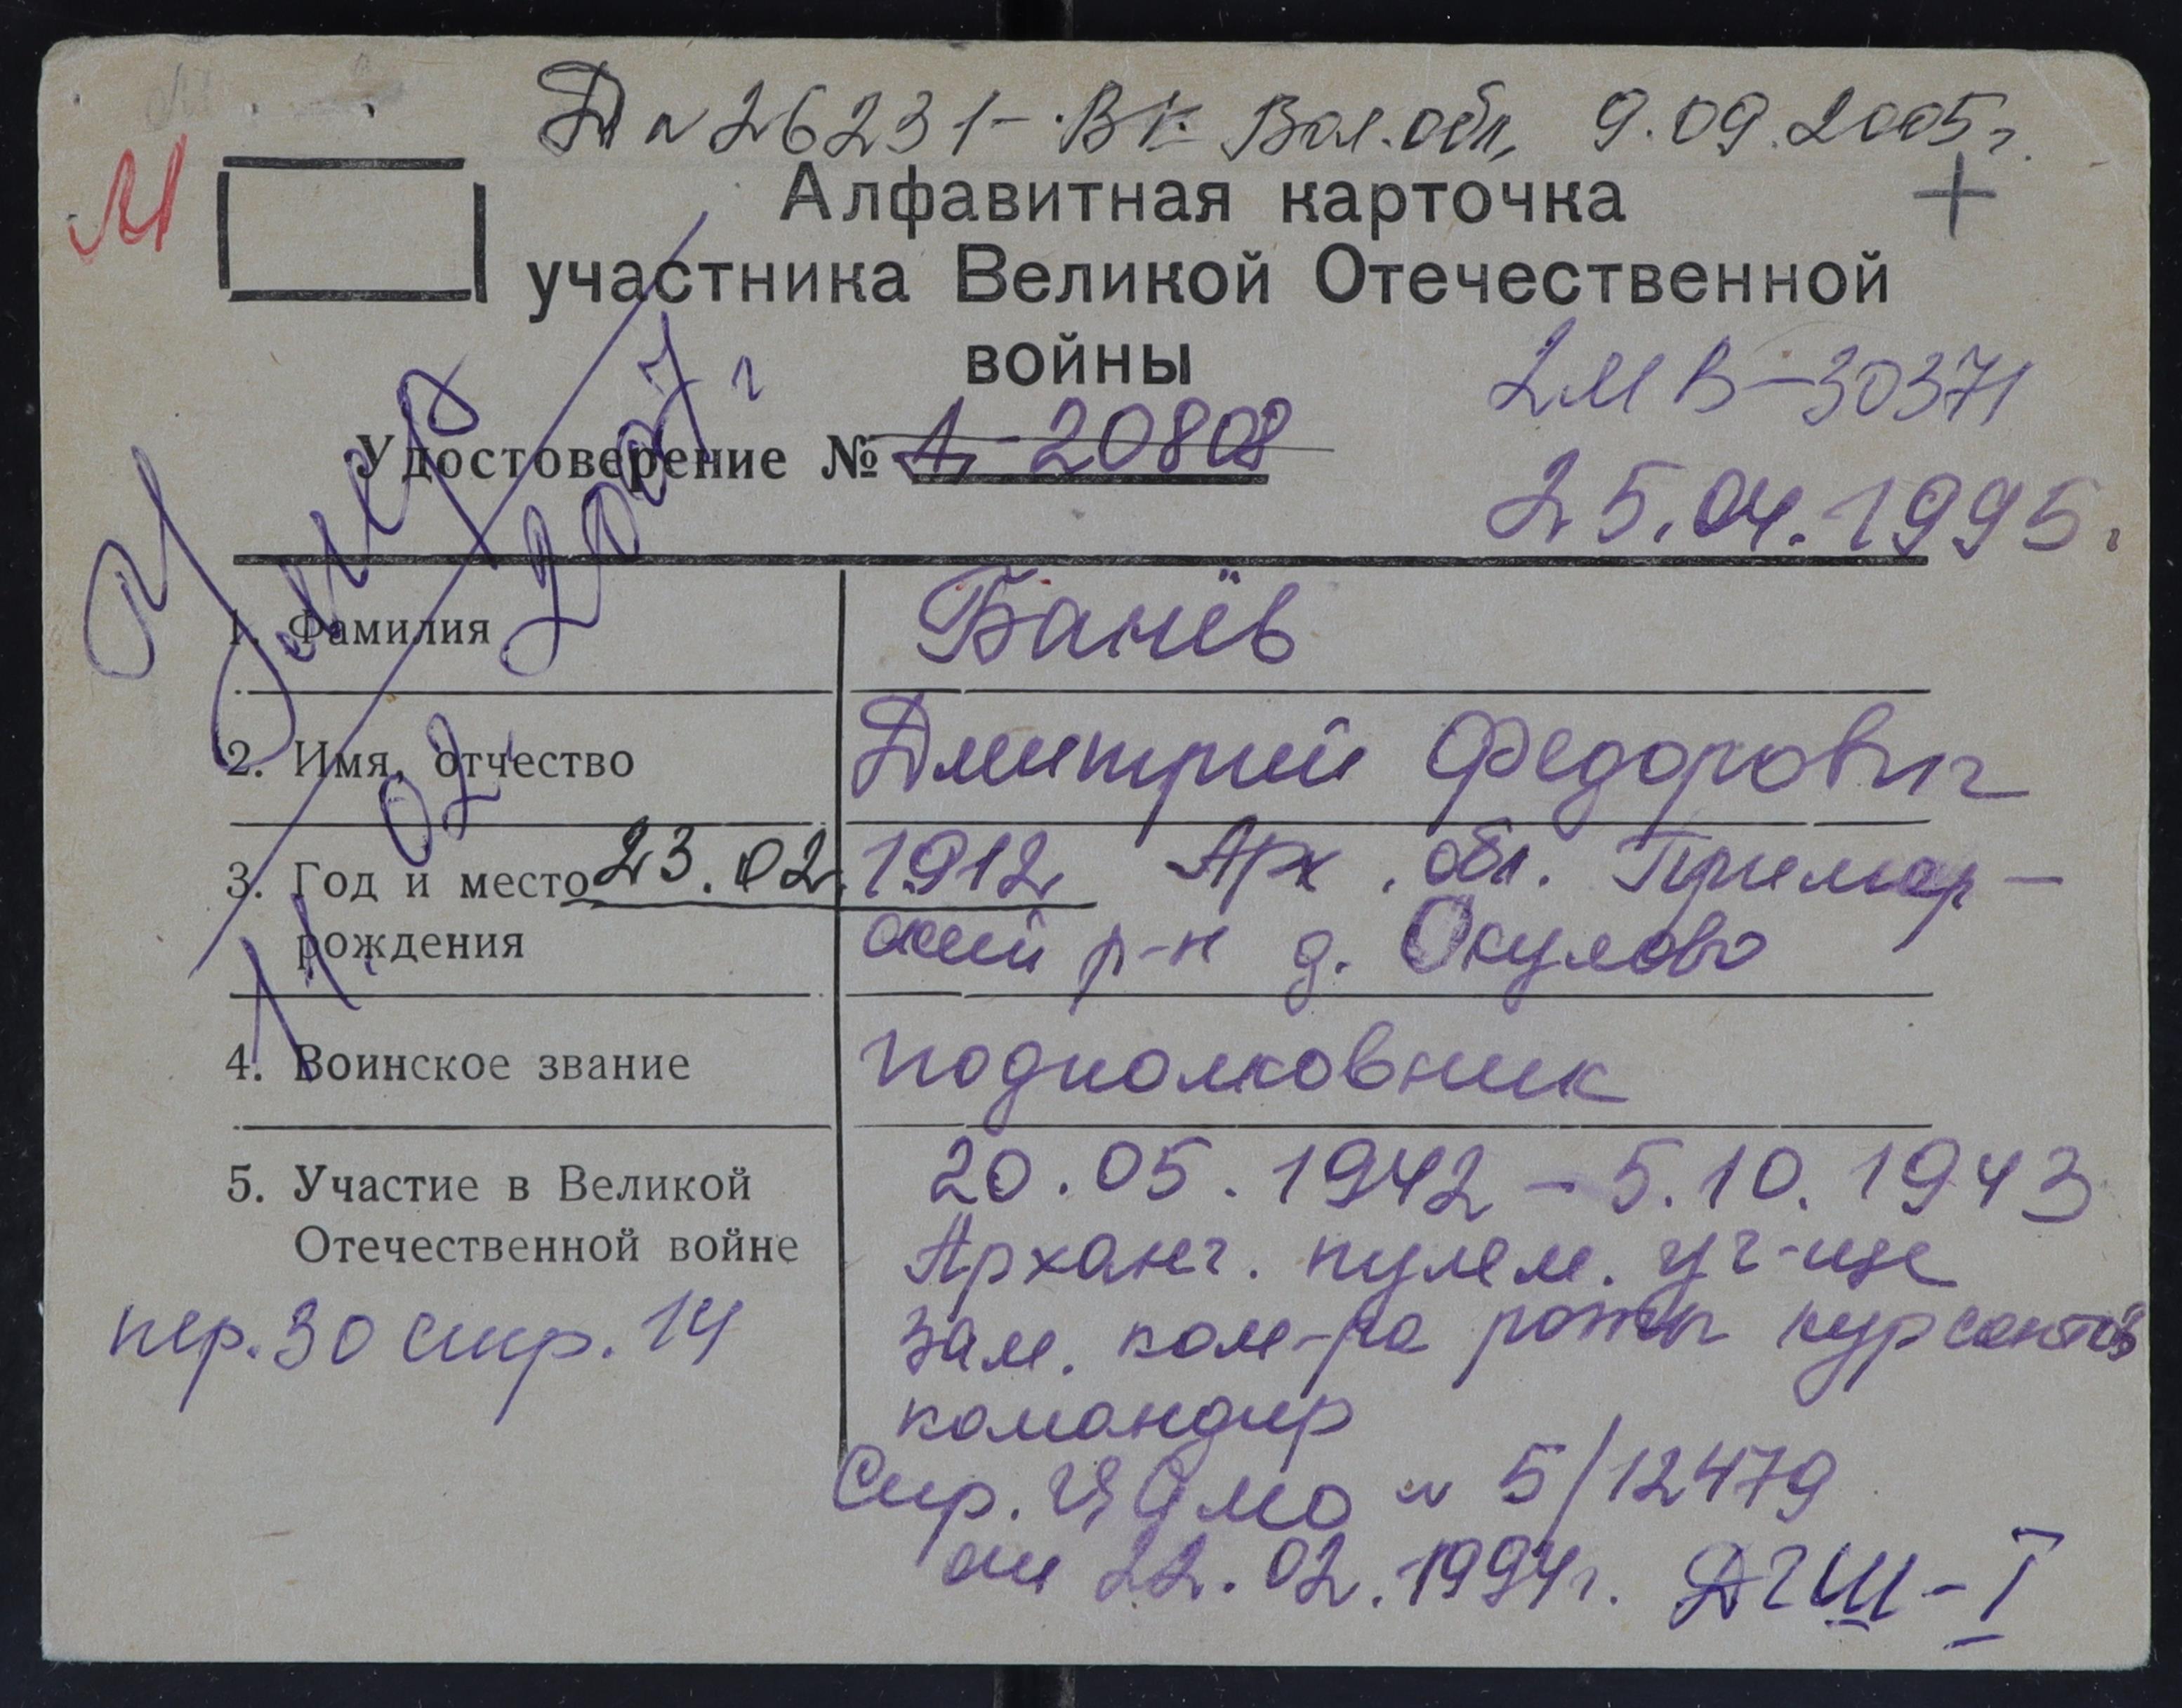 Д № 26231 - ВК Вол. обл, 9.09.2005 г.
М
Алфавитная карточка
+
участника Великой Отечественной
войны
2МВ-30371
Удостоверение № 20808
25.04.1995 г
Умер 11.02.2007 г
1. Фамилия Банёв
2. Имя, отчество Дмитрий Федорович
3. Год и место 23.02.1912 Арх. обл. Примор-
рождения ский р-н д. Окулово
4. Воинское звание подполковник
5. Участие в Великой 20.05.1942 - 5.10.1943
Отечественной войне Арханг. пулем. уч-ще
пер. 30 стр. 14 зам. ком-ра роты курсантов
командир
Спр. ЦАМО № 5/12479
от 22.02.1994 г. ДГШ-I